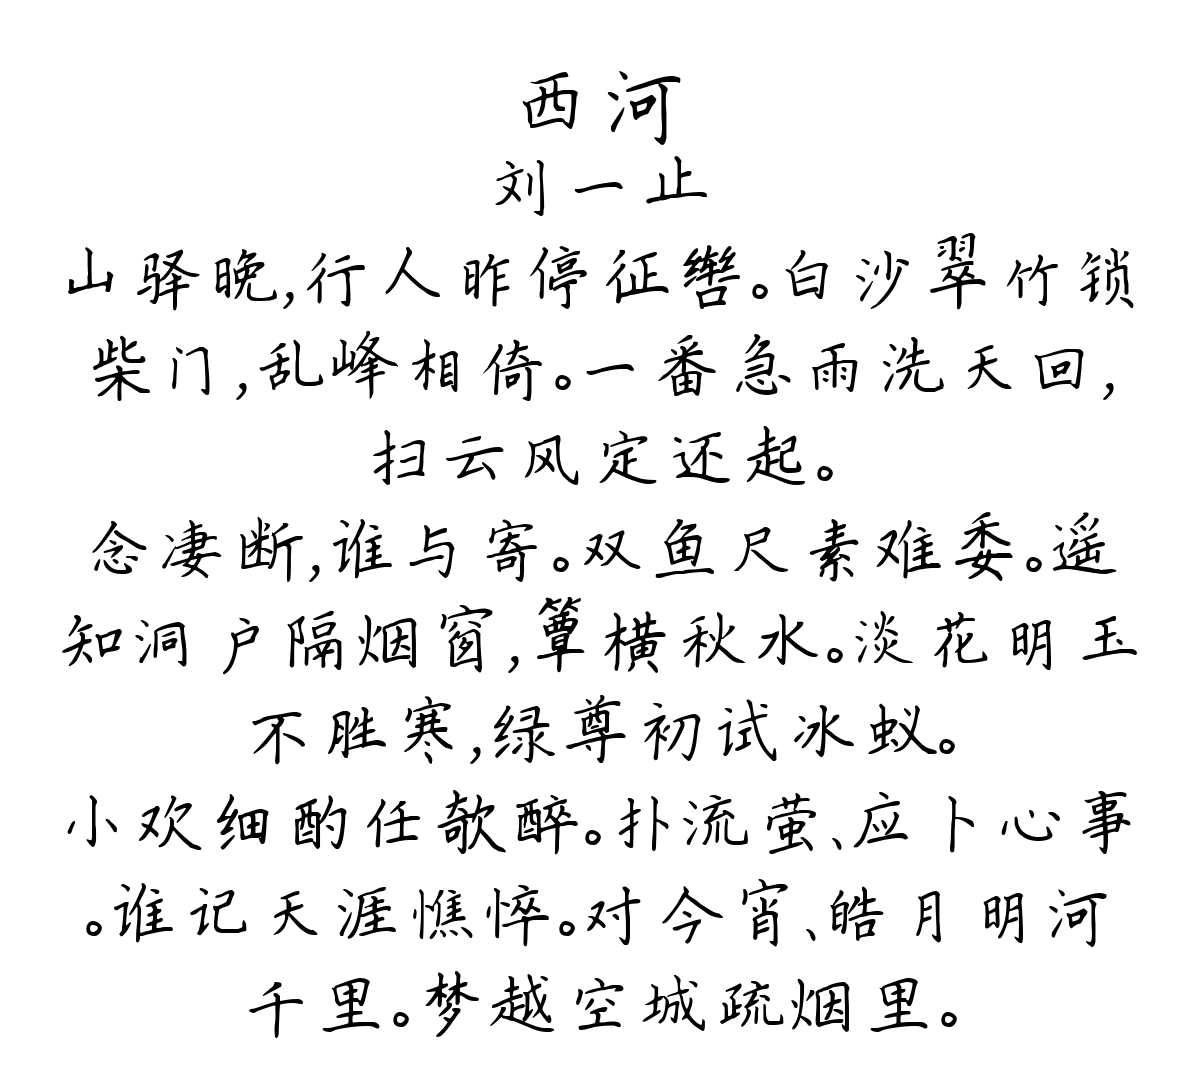 西河
刘一止
山驿晚,行人昨停征辔。白沙翠竹锁
柴门,乱峰相倚。一番急雨洗天回,
扫云风定还起。
念凄断,谁与寄。双鱼尺素难委。遥
知洞户隔烟窗,簟横秋水。淡花明玉
不胜寒,绿尊初试冰蚁。
小欢细酌任欹醉。扑流萤、应卜心事
。谁记天涯憔悴。对今宵、皓月明河
千里。梦越空城疏烟里。